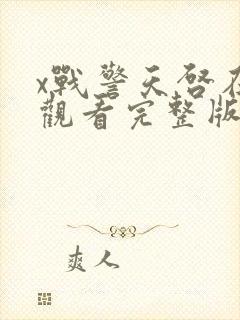 x戰警天啓在
觀看完整版
爽人